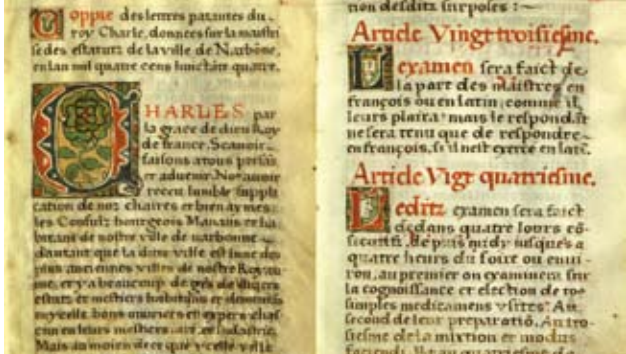 Coppie des lettres patantes du
roy Charle, donnees sur la maistri
se des estatuz de la ville de Narbõne,
en lan mil quatre cens huictãte quatre.
CHARLES par
la grace de dieu Roy
de france. Scauoir
faisons a tous presãs
et aduenir. Nos auoir
receu lumble suppli
cation de noz chaires et bien aymes
les Consulz bourgeois Manans et ha
bitans de nostre ville de narbonne
dautant que la dicte ville est lune des
plus anciennes villes de nostre Royau
me, et y a beaucoup de gẽs de diuers
estatz et mestiers habitans et demeurãs
en ycelle, bons ouuriers et expers chas
cun en leurs mestiers, art, et industrie.
Mais au moien de ce que ycelle ville
tion desditz surposes :~
Article Vingt troisiesme.
Lexamen sera faict de
la part des Maistres en
françois ou en latin, comme il
leurs plaira: mais le respondãt
ne sera tenu que de respondre
en françois, s'il n'est exercé en latĩ.
Article Vigt quatriesme.
Leditz examen sera faict
dedans quatre iours cõ-
secutifz, depuis midy iusques a
quatre heurs du soire ou envi-
ron, au premier on examinera sur
la cognoissance et election de tos
simples medicamens vsites: Au
second de leur preparatiõ, Au tro-
siesme de la mixtion et modus
faciendi, Et au quatriesme de